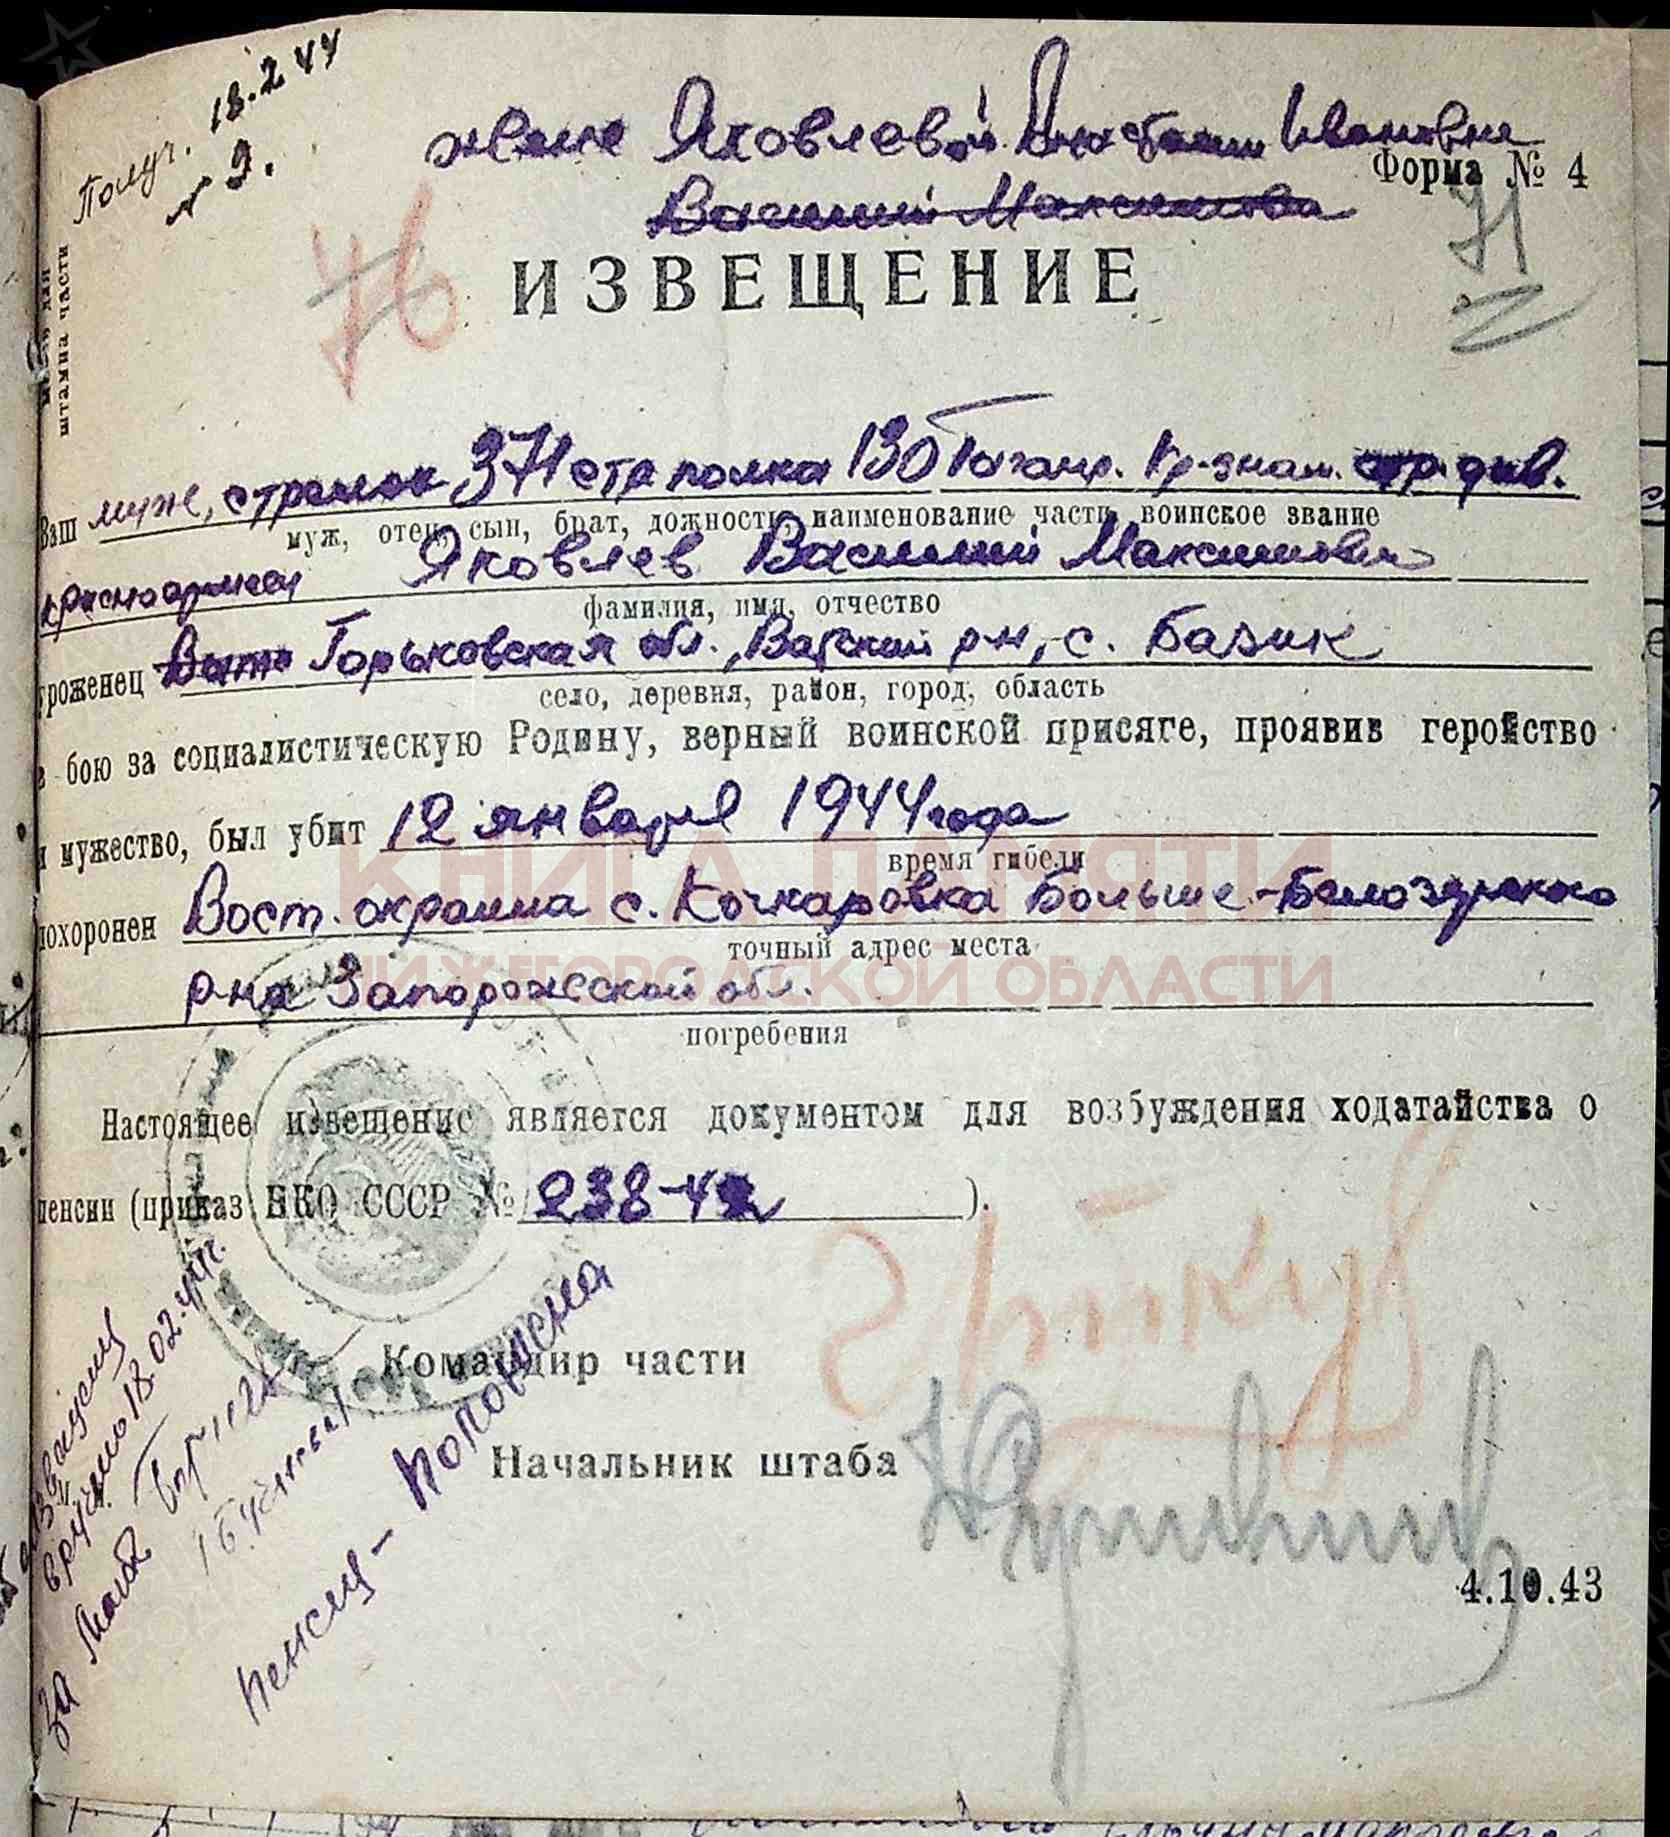 Получ. 18.2 44
№ 9.
жене Яковлевой Анастасии Ивановне
Форма № 4
Василий Максимова
71
76
ИЗВЕЩЕНИЕ
место для
штампа части
Ваш муж, стрелок 371 стр полка 130 Таганр. Кр-знам. стр. див.
муж, отец, сын, брат, дожность, наименование части, воинское звание
красноармеец Яковлев Василий Максимович
фамилия, имя, отчество
уроженец Горьковская обл., Вачский р-н, с. Базик
село, деревня, район, город, область
в бою за социалистическую Родину, верный воинской присяге, проявив геройство
и мужество, был убит 12 января 1944 года
время гибели
похоронен Вост. окраина с. Кочкаровка Больше-Белозерского
точный адрес места
р-на Запорожской обл.
погребения
КНИГА ПАМЯТИ
НИЖЕГОРОДСКОЙ ОБЛАСТИ
Настоящее извещение является документом для возбуждения ходатайства о
пенсии (приказ НКО СССР № 238-42 ).
Командир части
Начальник штаба
М.
вручено 18.02.44г.
за
пенсии - поповщена
4.10.43